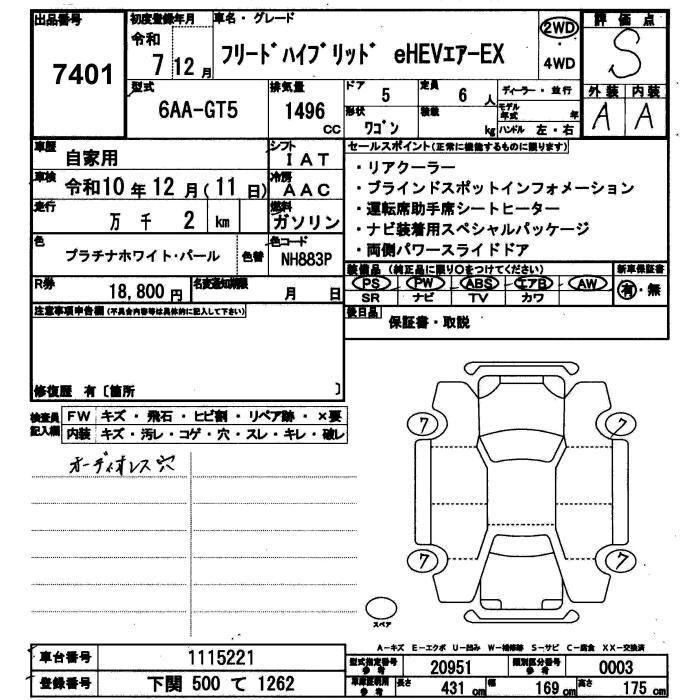 出品番号 7401
初度登録年月 令和 7年 12月
車名・グレード
フリードハイブリッド eHEVエアーEX
2WD ・ 4WD
評価点 S
外装 A 内装 A
型式 6AA-GT5
排気量 1496 CC
ドア 5
定員 6 人
ディーラー・並行
形状 ワゴン
積載 kg
モデル年式 年
ハンドル 左・右
車歴 自家用
シフト IAT
車検 令和10年12月(11日)
冷房 AAC
走行 万千 2 km
燃料 ガソリン
色 プラチナホワイト・パール
色替
色コード NH883P
R券 18,800円
名変通知期限 月 日
セールスポイント(正常に機能するものに限ります)
・リアクーラー
・ブラインドスポットインフォメーション
・運転席助手席シートヒーター
・ナビ装着用スペシャルパッケージ
・両側パワースライドドア
装備品 (純正品に限り○をつけてください)
新車保証書 有・無
PS PW ABS エアB AW
SR ナビ TV カワ
後日品 保証書・取説
注意事項申告欄(不具合内容等は具体的に記入して下さい)
修復歴 有〔箇所 〕
検査員記入欄
FW キズ・飛石・ヒビ割・リペア跡・×要
内装 キズ・汚レ・コゲ・穴・スレ・キレ・破レ
オーディオレス穴
7 7
7 7
スペア
A-キズ E-エクボ U-凹み W-補修跡 S-サビ C-腐食 XX-交換済
車台番号 1115221
登録番号 下関 500 て 1262
型式指定番号参考 20951
類別区分番号参考 0003
車庫証明用参考 長さ 431 cm 幅 169 cm 高さ 175 cm